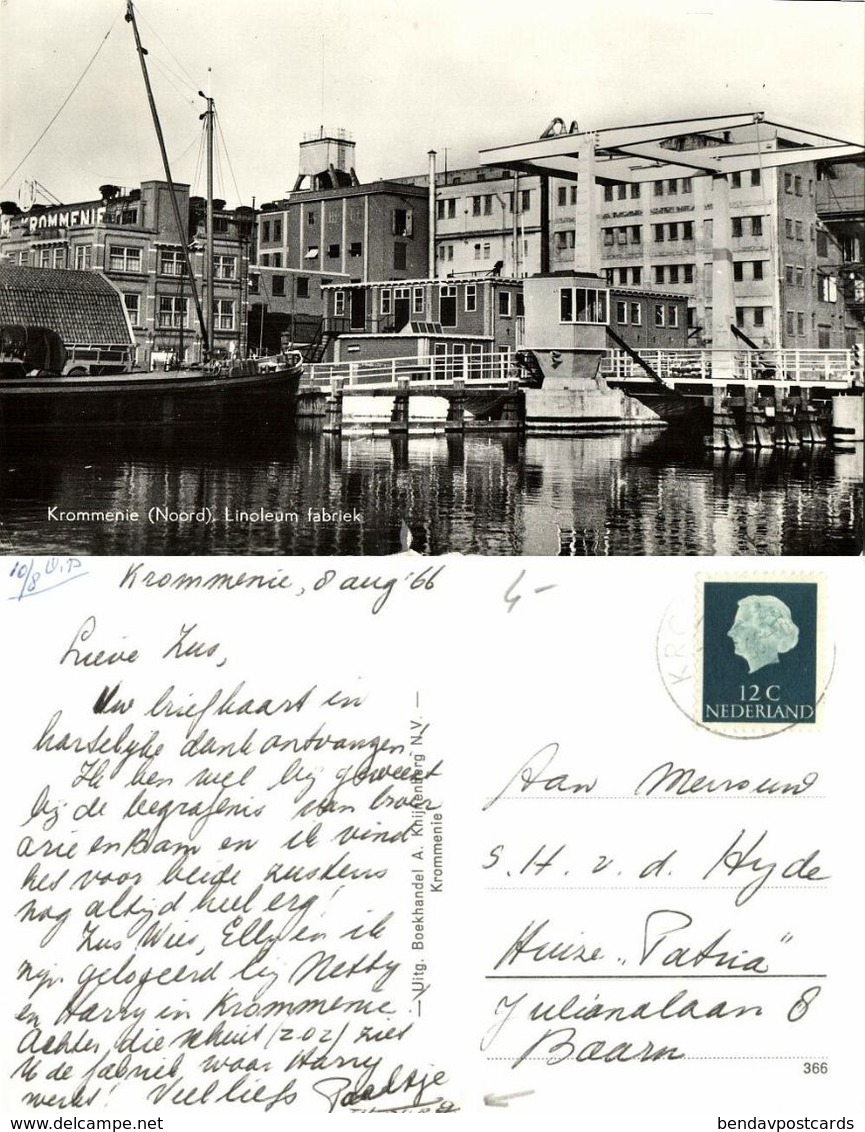 KROMMENIE
Krommenie (Noord), Linoleum fabriek
10/8
Krommenie, 8 aug '66
Lieve Zus,
Uw briefkaart in
hartelijke dank ontvangen!
Ik ben wel bij geweest
bij de begrafenis van broer
Arie en Bram en ik vind
het voor beide zusters
nog altijd heel erg!
Zus Wies, Elly en ik
zijn gelogeerd bij Netty
en Harry in Krommenie.
Achter die schuit (z.o.z.) ziet
U de fabriek waar Harry
werkt! Veel liefs
— Uitg. Boekhandel A. Knijnenberg N.V. —
Krommenie
4-
KRO
12 C
NEDERLAND
Aan
S. H. v. d. Hyde
Huize "Patria"
Julianalaan 8
Baarn
366
www.delcampe.net
bendavpostcards